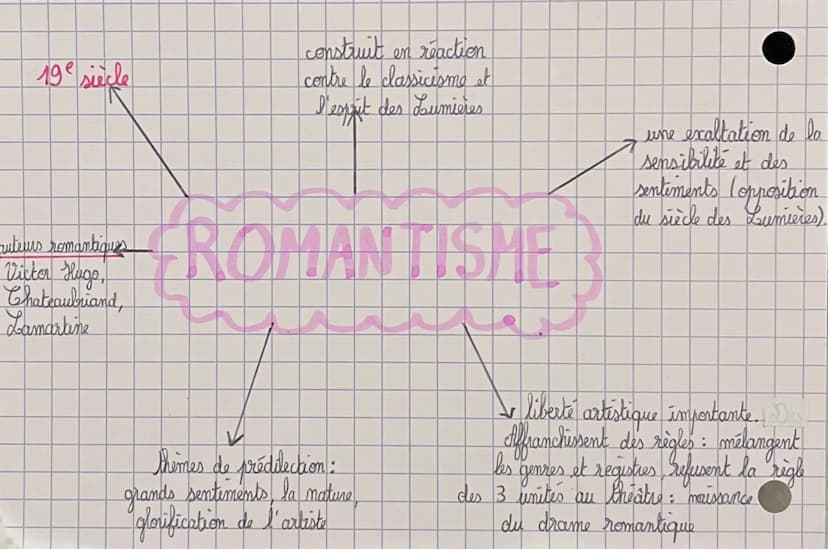 19e siècle
construit en réaction
contre le classicisme et
l'esprit des Lumières
une exaltation de la
sensibilité et des
sentiments (opposition
du siècle des Lumières).
ROMANTISME
auteurs romantiques
Victor Hugo,
Chateaubriand,
Lamartine
thèmes de prédilection :
grands sentiments, la nature,
glorification de l'artiste
liberté artistique importante.
Affranchissent des règles : mélangent
les genres et registres, refusent la règle
des 3 unités au théâtre : naissance
du drame romantique